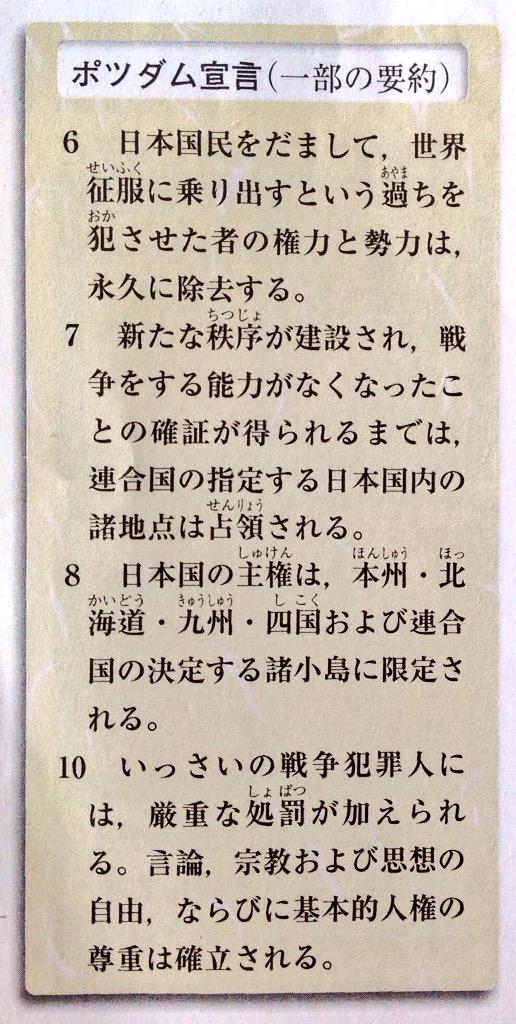 ポツダム宣言(一部の要約)
6 日本国民をだまして，世界
征服に乗り出すという過ちを
犯させた者の権力と勢力は，
永久に除去する。
7 新たな秩序が建設され，戦
争をする能力がなくなったこ
との確証が得られるまでは，
連合国の指定する日本国内の
諸地点は占領される。
8 日本国の主権は，本州・北
海道・九州・四国および連合
国の決定する諸小島に限定さ
れる。
10 いっさいの戦争犯罪人に
は，厳重な処罰が加えられ
る。言論，宗教および思想の
自由，ならびに基本的人権の
尊重は確立される。